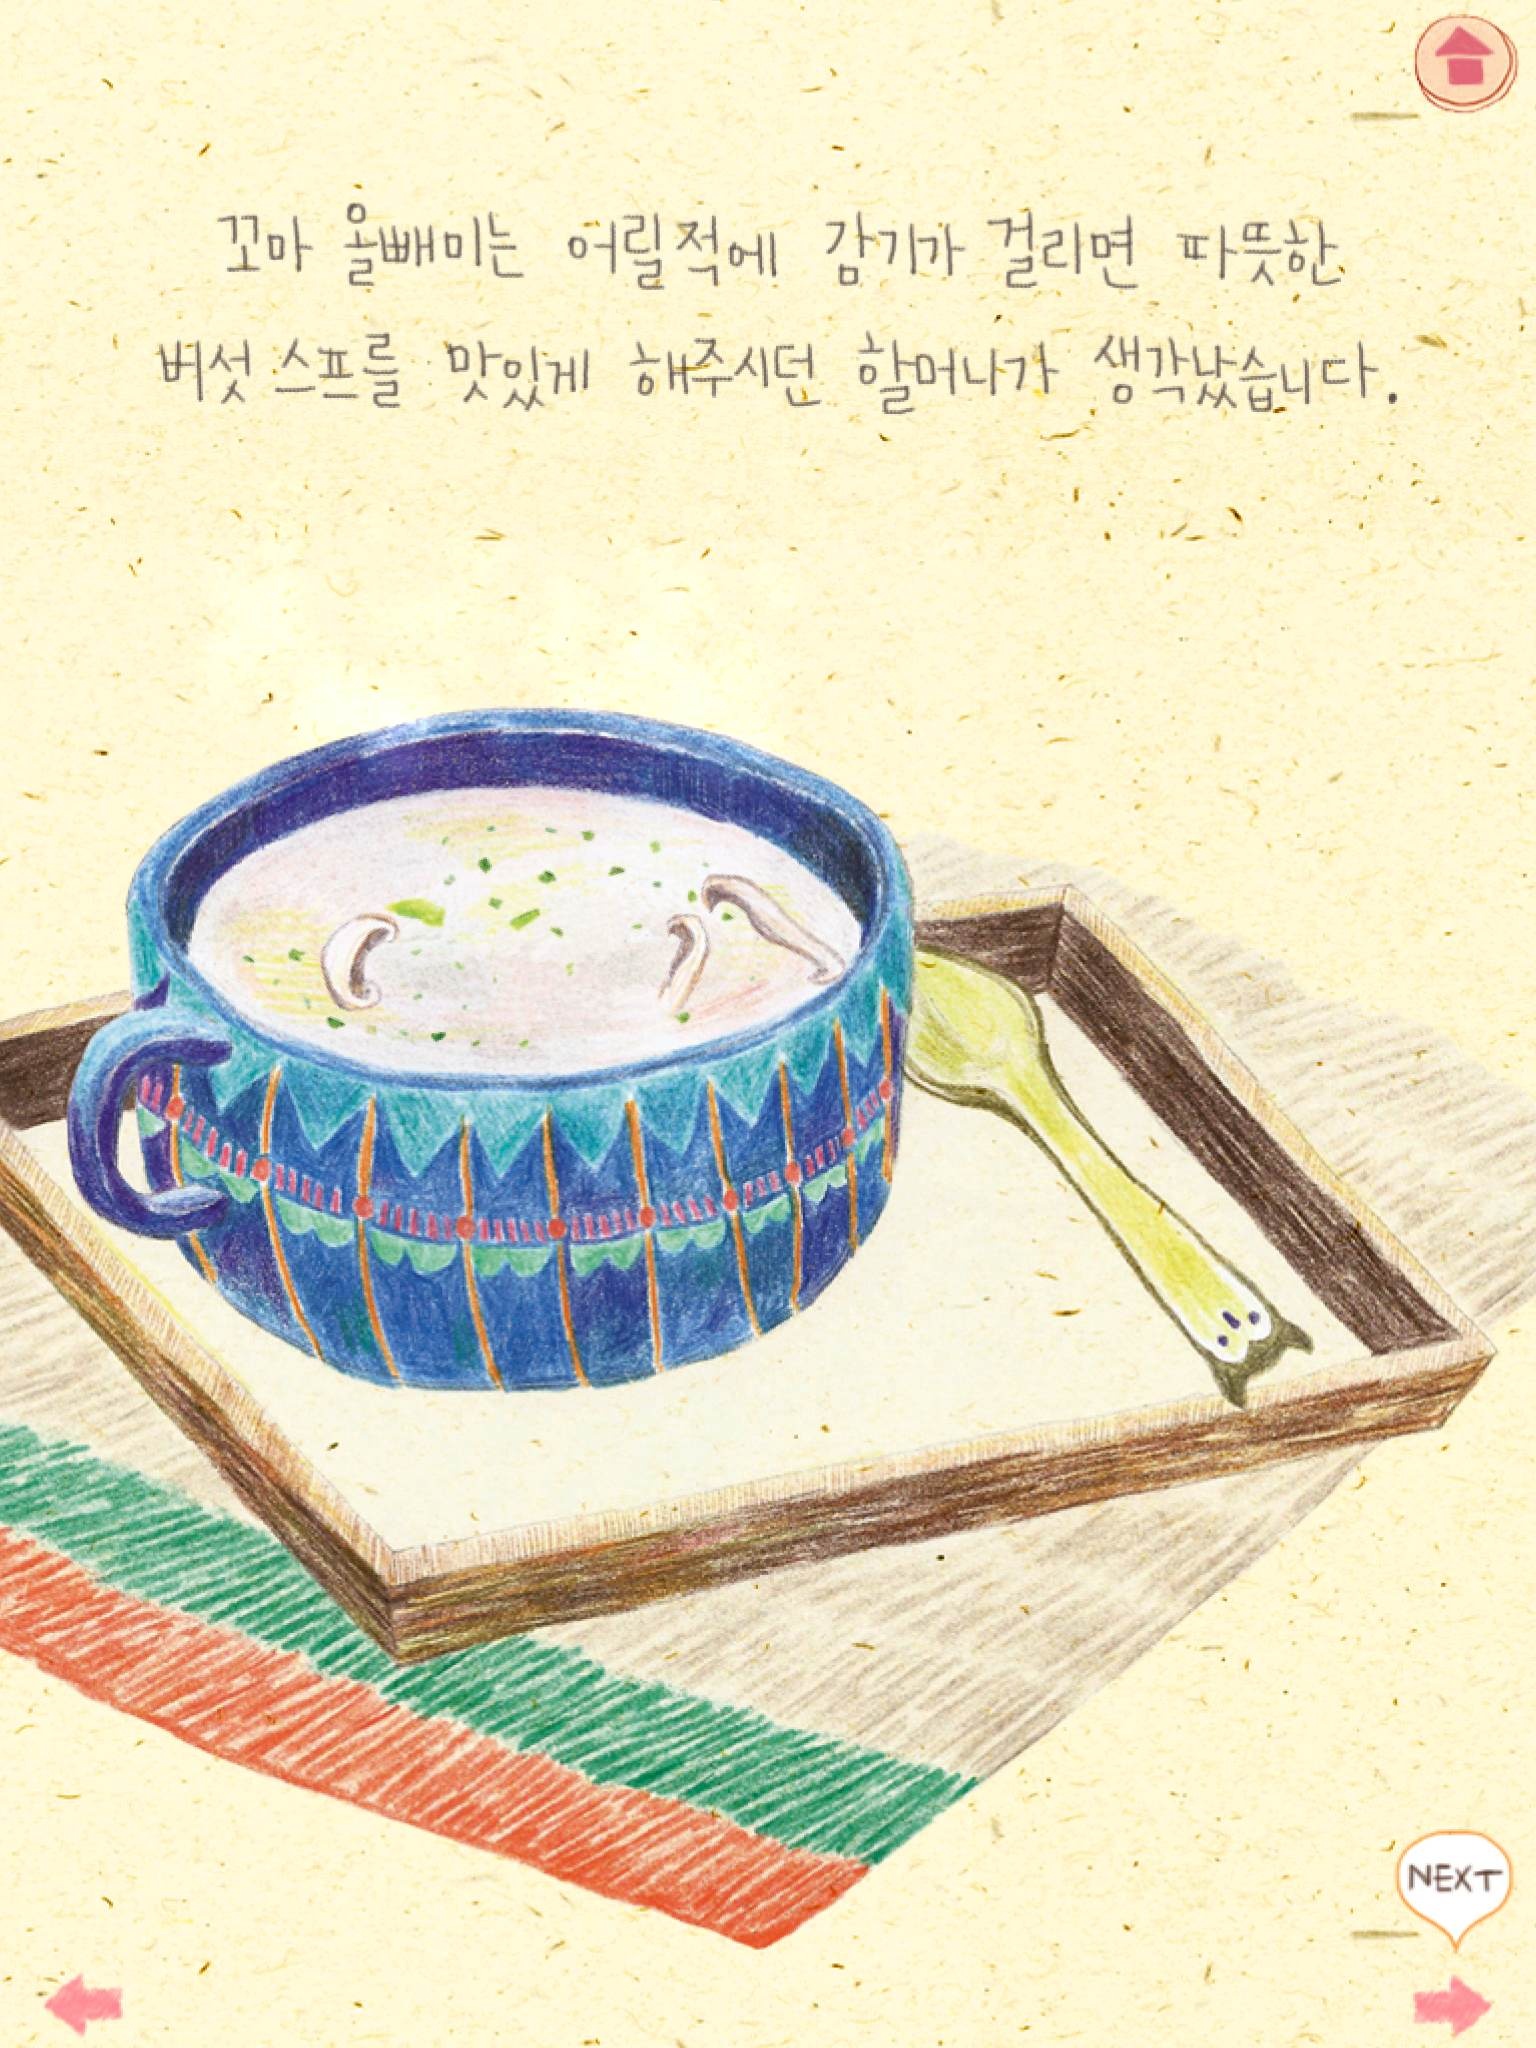 꼬마 올빼미는 어릴적에 감기가 걸리면 따뜻한
버섯 스프를 맛있게 해주시던 할머니가 생각났습니다.
NEXT